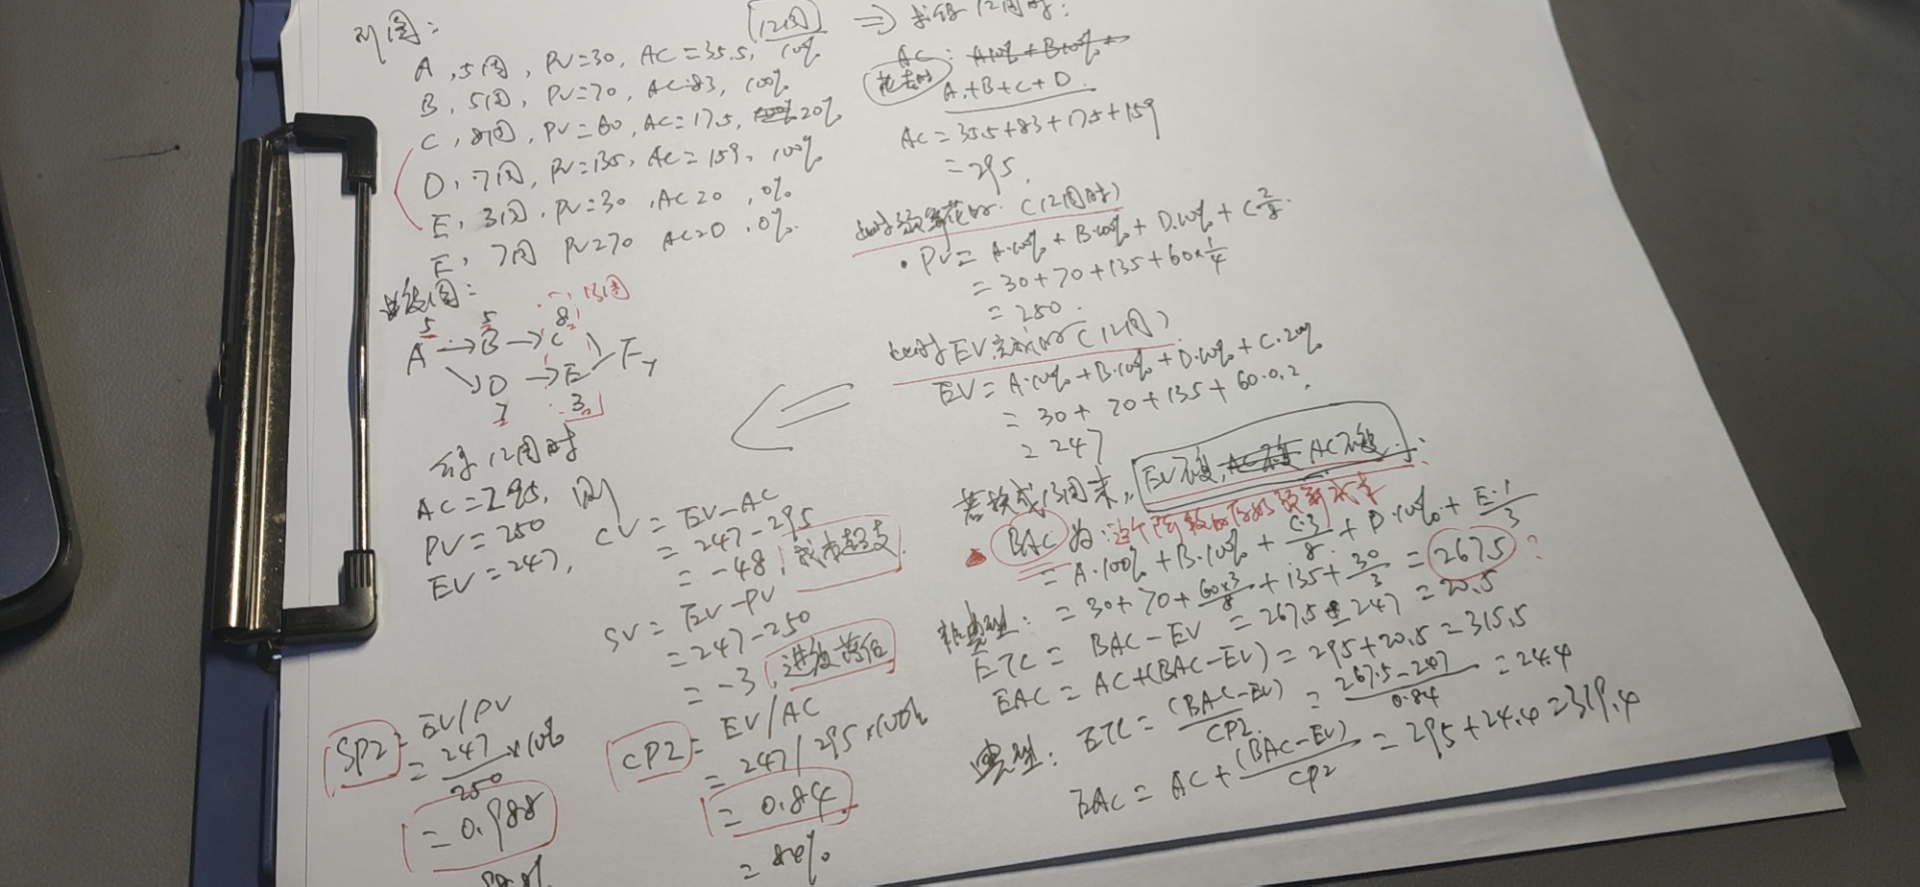 A, 5周, PV=30, AC=35.5, 100%
B, 5周, PV=70, AC=83, 100%
C, 8周, PV=60, AC=17.5, 20%
D, 7周, PV=135, AC=159, 100%
E, 3周, PV=30, AC=0, 0%
F, 7周 PV=70 AC=0, 0%
13周
5 5 8
A → B → C
F 7
D → E
7 3
12周时
AC=295, 则
PV=250
EV=247,
CV=EV-AC
=247-295
=-48, 成本超支
SV=EV-PV
=247-250
=-3, 进度落后
SPI=EV/PV
=247/250×100%
=0.988
CPI=EV/AC
=247/295×100%
=0.84
=84%
12周 ⇒ 12周时:
AC: A100%+B100%+
花去的 A+B+C+D
AC=35.5+83+17.5+159
=295.
此时预算花的. (12周时)
·PV=A·100%+B·100%+D·100%+C 2/8.
=30+70+135+60×1/4
=250.
此时EV完成的 (12周)
EV=A·100%+B·100%+D·100%+C·20%
=30+70+135+60·0.2.
=247
若换成13周末, EV不变, AC不变
BAC为:这个阶段的
=A·100%+B·100%+C·3/8+D·100%+E·1/3
非典型: =30+70+60×3/8+135+30/3=267.5?
ETC=BAC-EV=267.5-247=20.5
EAC=AC+(BAC-EV)=295+20.5=315.5
典型: ETC=(BAC-EV)/CPI=267.5-247/0.84=24.4
EAC=AC+(BAC-EV)/CPI=295+24.4=319.4